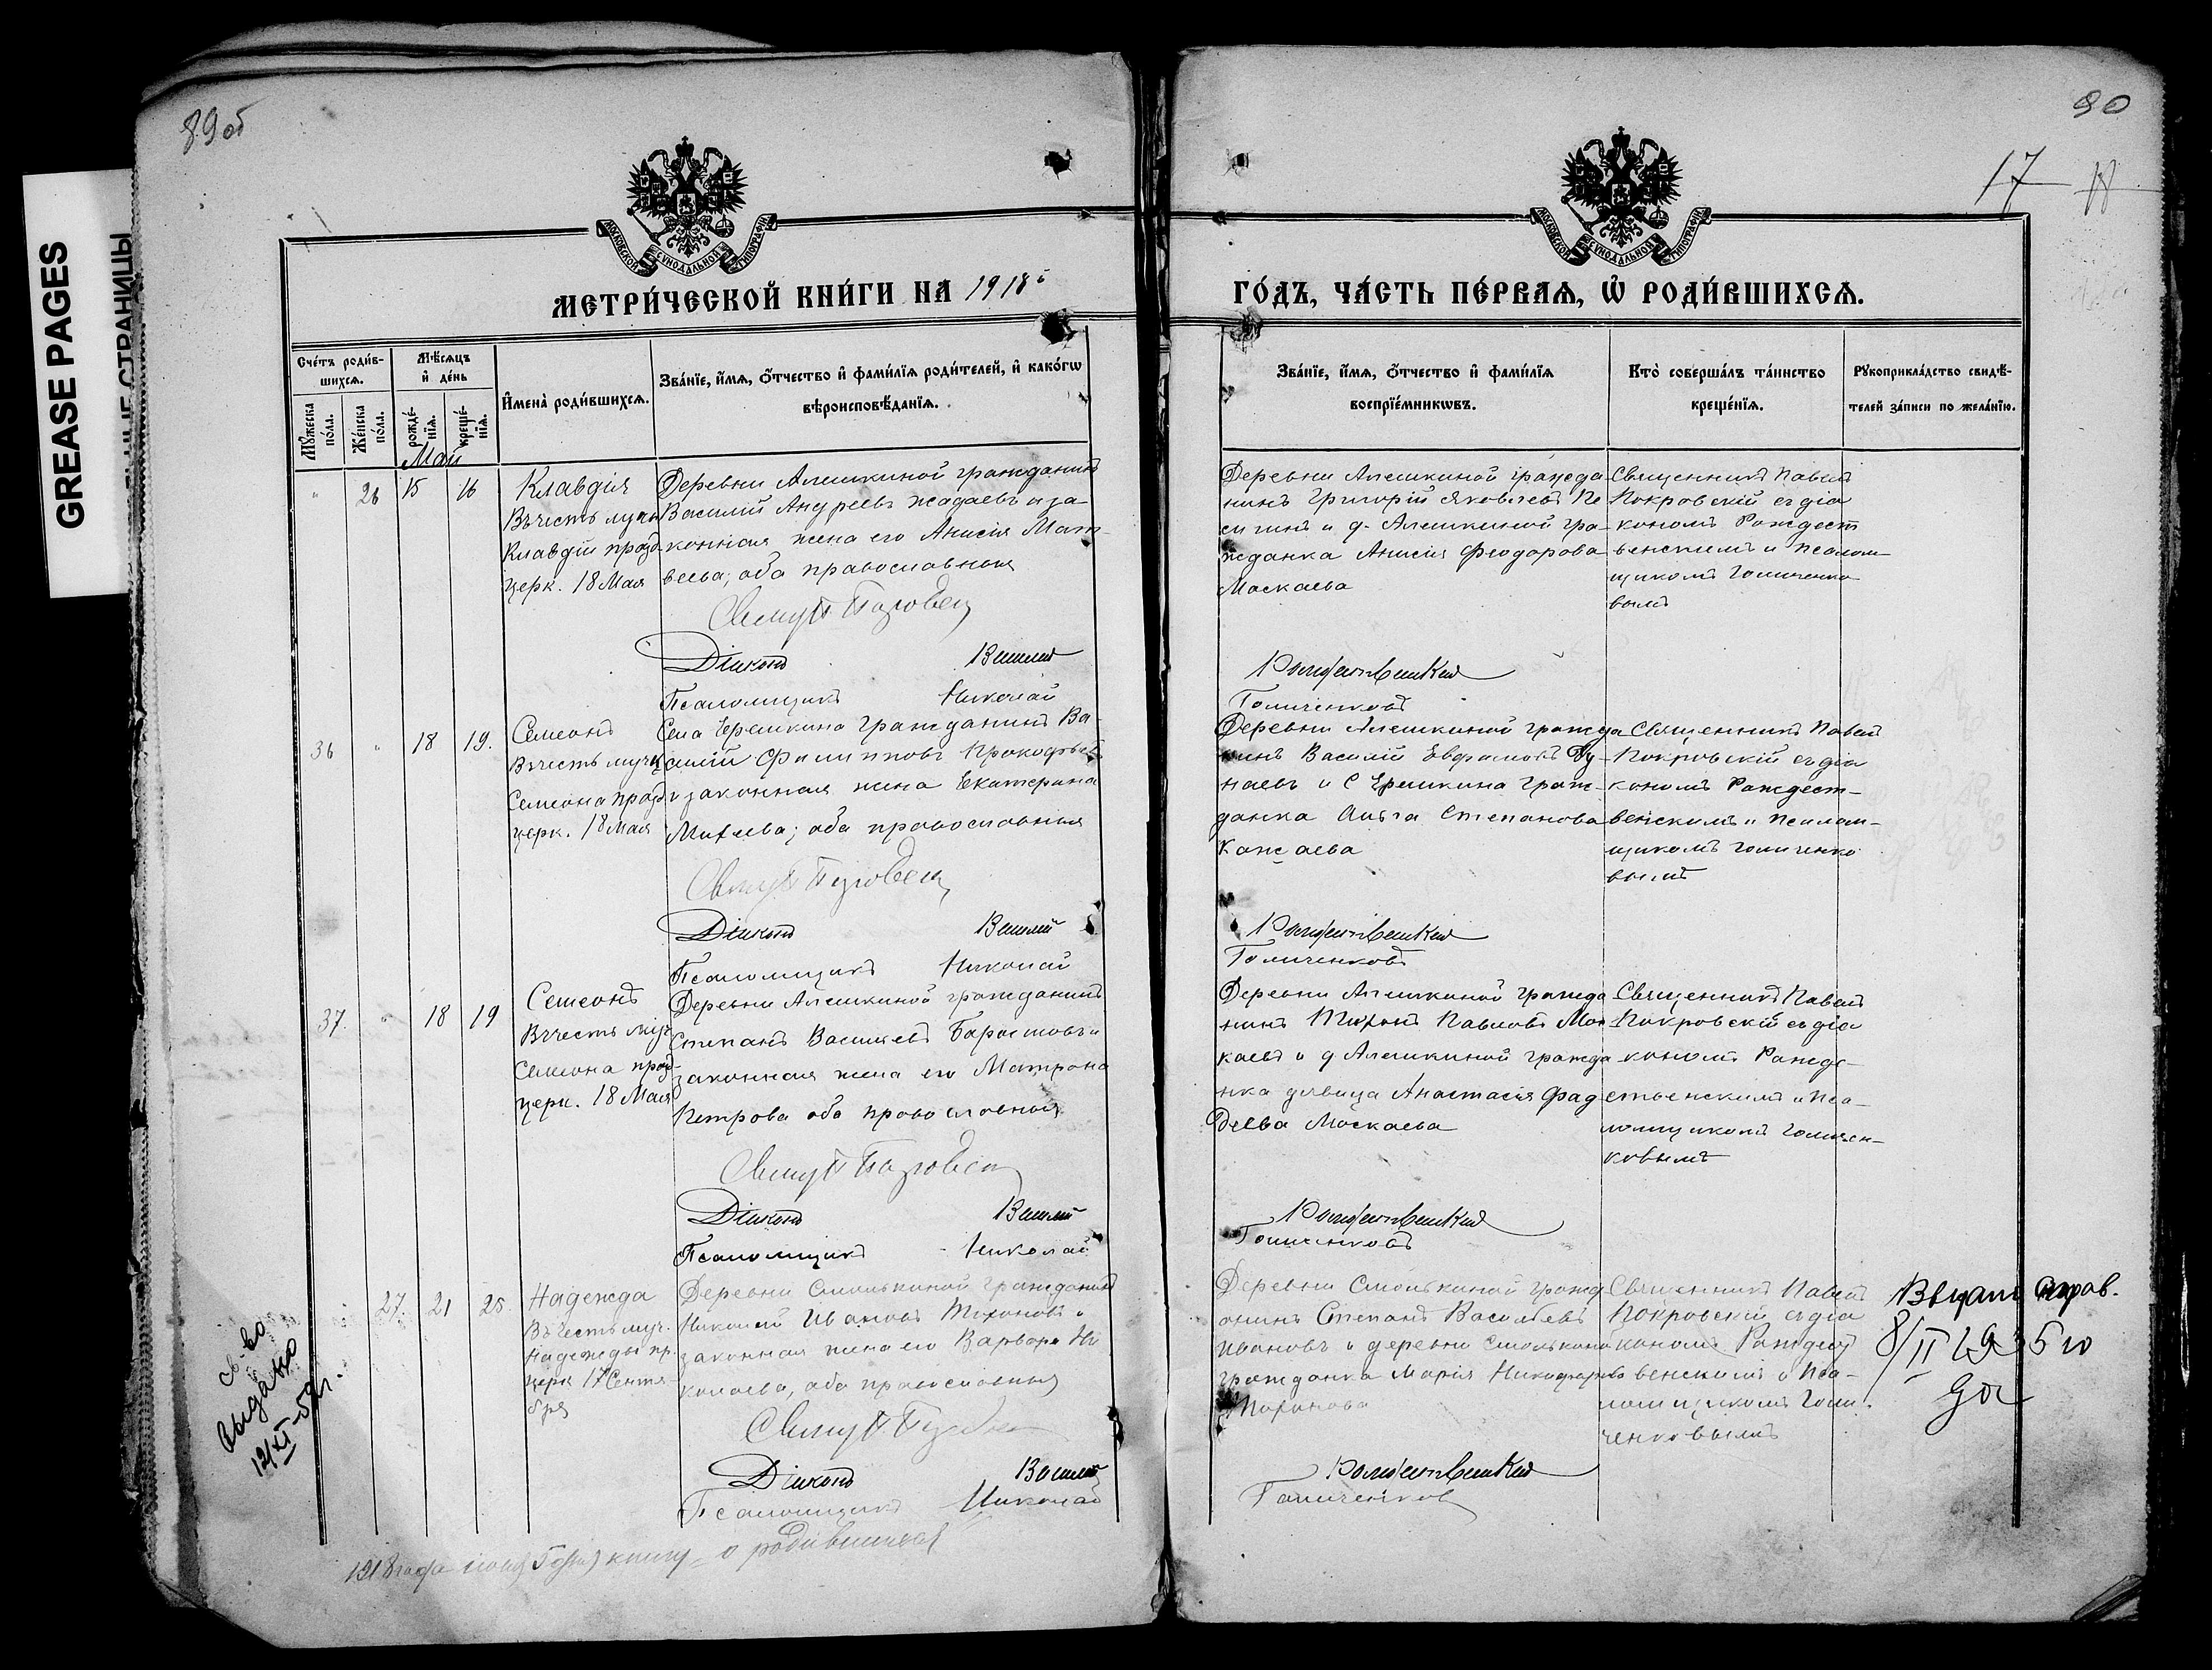 89 об
90
17
GREASE PAGES
МОСКОВСКОЙ СУНОДАЛЬНОЙ ТИПОГРАФІИ
МОСКОВСКОЙ СУНОДАЛЬНОЙ ТИПОГРАФІИ
МЕТРИ́ЧЕСКОЙ КНИ́ГИ НА 1918й
ГО́ДЪ, ЧА́СТЬ ПЕ́РВАѦ, Ѡ҆ РОДИ́ВШИХСѦ.
Сче́тъ роди́в-
шихсѧ.
Мѣ́сѧцъ
и҆ де́нь
И҆мена̀ роди́вшихсѧ.
Зва́нїе, и҆́мѧ, ѻ҆́тчество и҆ фами́лїѧ роди́телей, и҆ како́гѡ
вѣроисповѣ́данїѧ.
Мꙋ́жеска
по́ла.
Же́нска
по́ла.
рожде́-
нїѧ.
креще́-
нїѧ.
Зва́нїе, и҆́мѧ, ѻ҆́тчество и҆ фами́лїѧ
воспрїе́мникѡвъ.
Кто̀ соверша́лъ та́инство
креще́нїѧ.
Рꙋкоприкла́дство свидѣ́-
телей за́писи по жела́нїю.
Май
" 26 15 16
Клавдія
Въ честь муч.
Клавдіи празд.
церк. 18 Мая
Деревни Алешкиной гражданинъ
Василій Андреевъ Жадаевъ и за-
конная жена его Анисія Мат-
веева; оба православныя
Діаконъ Василій
Псаломщикъ Николай
Деревни Алешкиной гражда
нинъ Григорій Яковлевъ Пе
сигинъ и д. Алешкиной гра-
жданка Анисія Феодорова
Маскаева
Рождественскій
Голиченковъ
Священникъ Павелъ
Покровскій съ діа
кономъ Рождест
венскимъ и псалом-
щикомъ Голиченко
вымъ
36 " 18 19.
Семеонъ
Въ честь муч.
Семеона празд.
церк. 18 Мая
Села Еремкина гражданинъ Ва-
силій Филипповъ Прокофьевъ
и законная жена Екатерина
Матвеева; оба православныя
Діаконъ Василій
Псаломщикъ Николай
Деревни Алешкиной гражда
нинъ Василій Евфимовъ Ду-
наевъ и С Еремкина граж-
данка Анна Степанова
Рождественскій
Голиченковъ
Священникъ Павелъ
Покровскій съ діа
кономъ Рождест-
венскимъ и псалом-
щикомъ Голиченко
вымъ
37. " 18 19
Семеонъ
Въ честь муч.
Семеона празд-
церк. 18 Мая
Деревни Алешкиной гражданинъ
Степанъ Васильевъ и
законная жена его Матрона
Петрова оба православныя
Діаконъ Василій
Псаломщикъ Николай
Деревни Алешкиной гражда
нинъ Павловъ Мас-
каевъ и д Алешкиной гражда
нка девица Анастасія Фад
деева Маскаева
Рождественскій
Голиченковъ
Священникъ Павелъ
Покровскій съ діа
кономъ Рожде-
ственскимъ и пса-
ломщикомъ Голичен-
ковымъ
27. 21 25.
Надежда
Въ честь муч.
Надежды пр.
церк 17 Сентя-
бря
Деревни Смолькиной гражданинъ
Николай Ивановъ Тихоновъ и
законная жена его Варвара Ни
колаева, оба православныя
Діаконъ Василій
Псаломщикъ Николай
Деревни Смолькиной гражд
анинъ Степанъ Васильевъ
Ивановъ и деревни Смолькиной
гражданка Марія Никифорова
Рождественскій
Голиченковъ
Священникъ Павелъ
Покровскій съ діа
кономъ Рождест
венскимъ и пса-
ломщикомъ Голи-
ченковымъ
справ.
8/II 1935 го
св-во
выдано
12/XI-59г.
1918 года книгу о родившихся